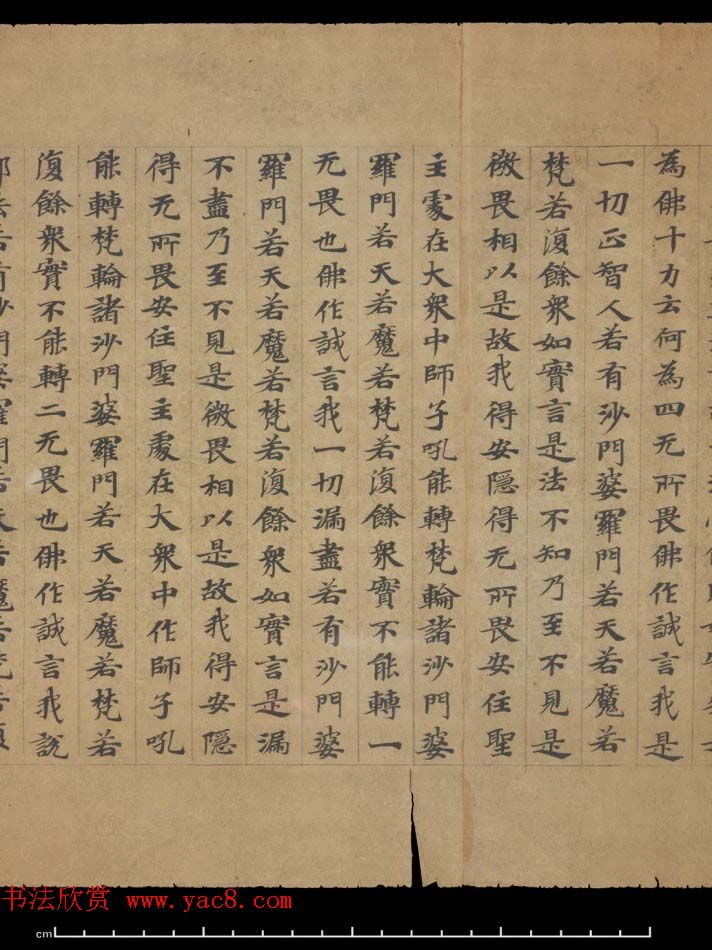 為佛十力云何為四无所畏佛作誠言我是
一切正智人若有沙門婆羅門若天若魔若
梵若復餘衆如實言是法不知乃至不見是
微畏相以是故我得安隱得无所畏安住聖
主處在大衆中師子吼能轉梵輪諸沙門婆
羅門若天若魔若梵若復餘衆實不能轉一
无畏也佛作誠言我一切漏盡若有沙門婆
羅門若天若魔若梵若復餘衆如實言是漏
不盡乃至不見是微畏相以是故我得安隱
得无所畏安住聖主處在大衆中作師子吼
能轉梵輪諸沙門婆羅門若天若魔若梵若
復餘衆實不能轉二无畏也佛作誠言我說
有沙門婆羅門若天若魔若梵若復
书法欣赏 www.yac8.com
cm